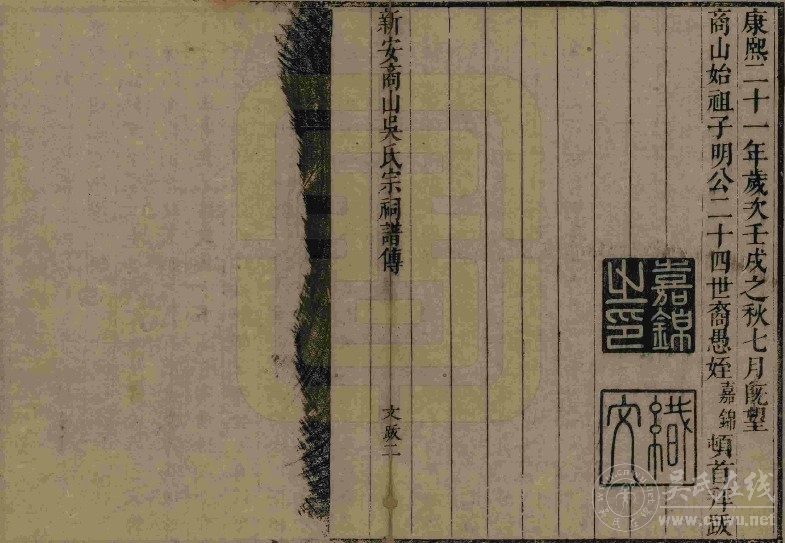 康熙二十一年歲次壬戌之秋七月既望
商山始祖子明公二十四世裔愚姪嘉錦頓首拜跋
嘉錦之印
織文
新安商山吳氏宗祠譜傳
文跋二
吳氏在线
www.cnwu.net